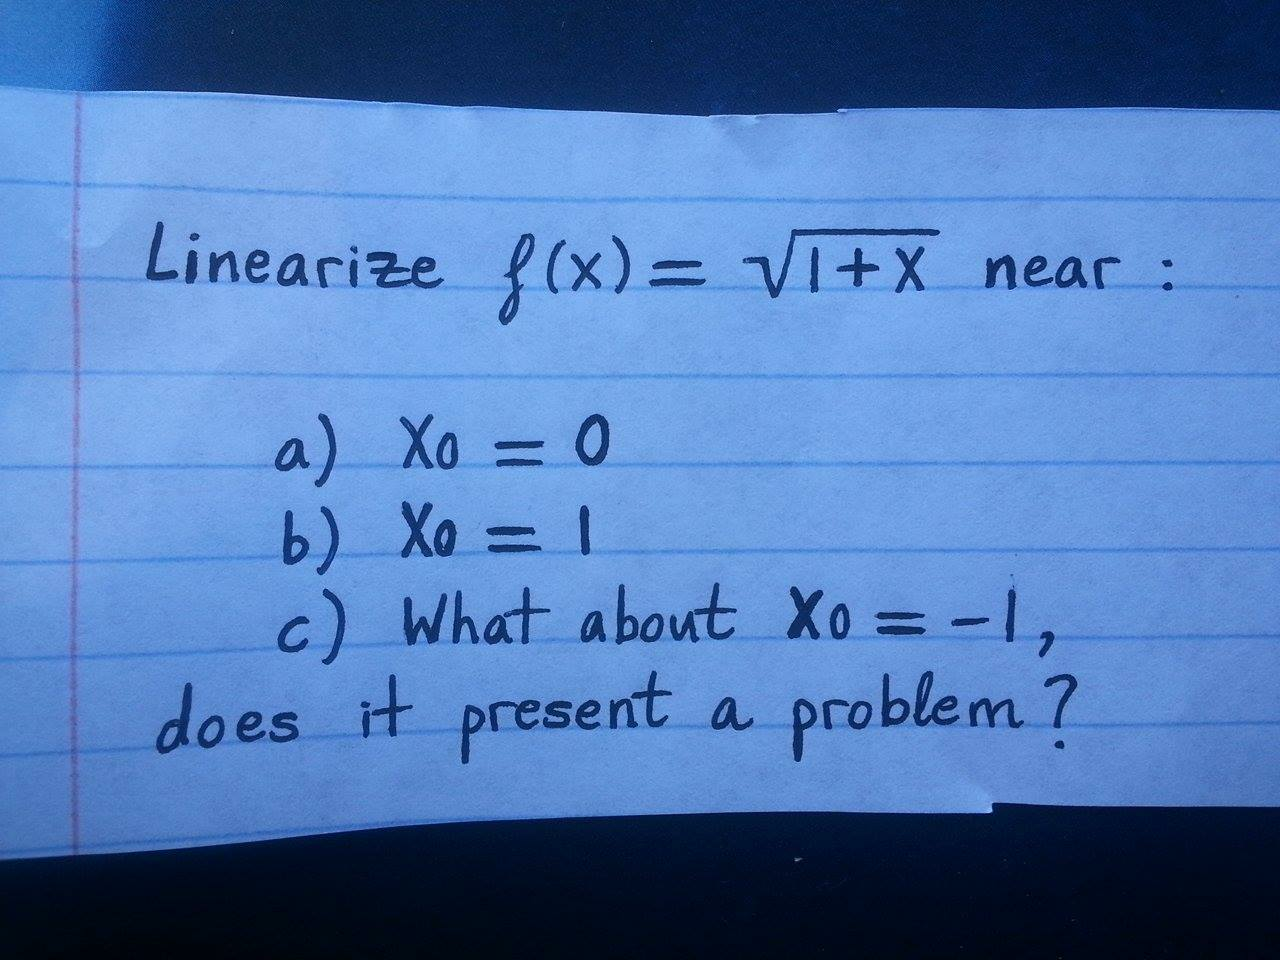 Linearize f(x) = √(1+x) near :
a) x₀ = 0
b) x₀ = 1
c) What about x₀ = -1,
does it present a problem?